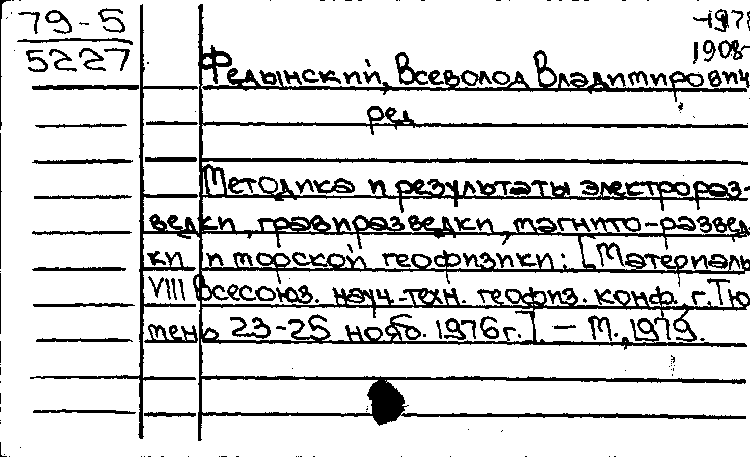 79-5
5227
-1978
1908-
Федынский, Всеволод Владимирович
ред
Методика и результаты электрораз-
ведки, гравиразведки, магнито-развед
ки и морской геофизики: [Материалы
VIII Всесоюз. науч.-техн. геофиз. конф., г. Тю
мень 23-25 нояб. 1976г.]. — М., 1979.